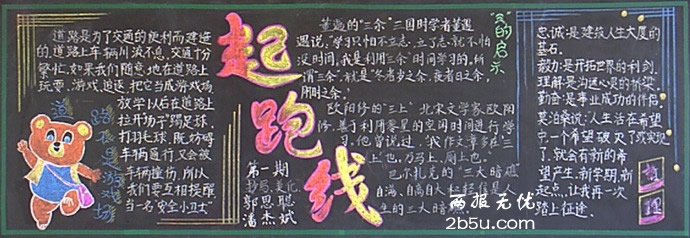 道路是为了交通的便利而建造
的,道路上车辆川流不息,交通十分
繁忙,如果我们随意地在道路上
玩耍、游戏、追逐,把它当成游戏场,
放学以后在道路上
拉开场子踢足球、
打羽毛球,既妨碍
车辆通行又会被
车辆撞伤,所以
我们要互相提醒
当一名“安全小卫士”
道路不是游戏场
起跑线
第一期
抄写、美化:
郭思聪
潘杰斌
“三”的启示
董遇的“三余”三国时学者董遇
遇说:“学习只怕不立志,立了志,就不怕
没时间,我是利用三余”时间学习的,所
谓“三余”,就是“冬者岁之余,夜者日之余,
阴时之余。”
欧阳修的“三上”北宋文学家欧阳
修,善于利用零星的空闲时间进行学
习。他曾说过:“我作文章多在三
上”也,乃马上、厕上也。”
巴尔扎克的“三大暗礁
自满、自高自大、轻信是人
生的三大暗礁。”
忠诚是建筑人生大厦的
基石。
毅力是开拓世界的利剑。
理解是沟通心灵的桥梁。
勤奋是事业成功的伴侣。
莫泊桑说:人生活在希望
中,一个希望破灭了或实现
了,就会有新的希
望产生,新学期,新
起点,让我再一次
踏上征途。
哲理
两报无忧
2b5u.com